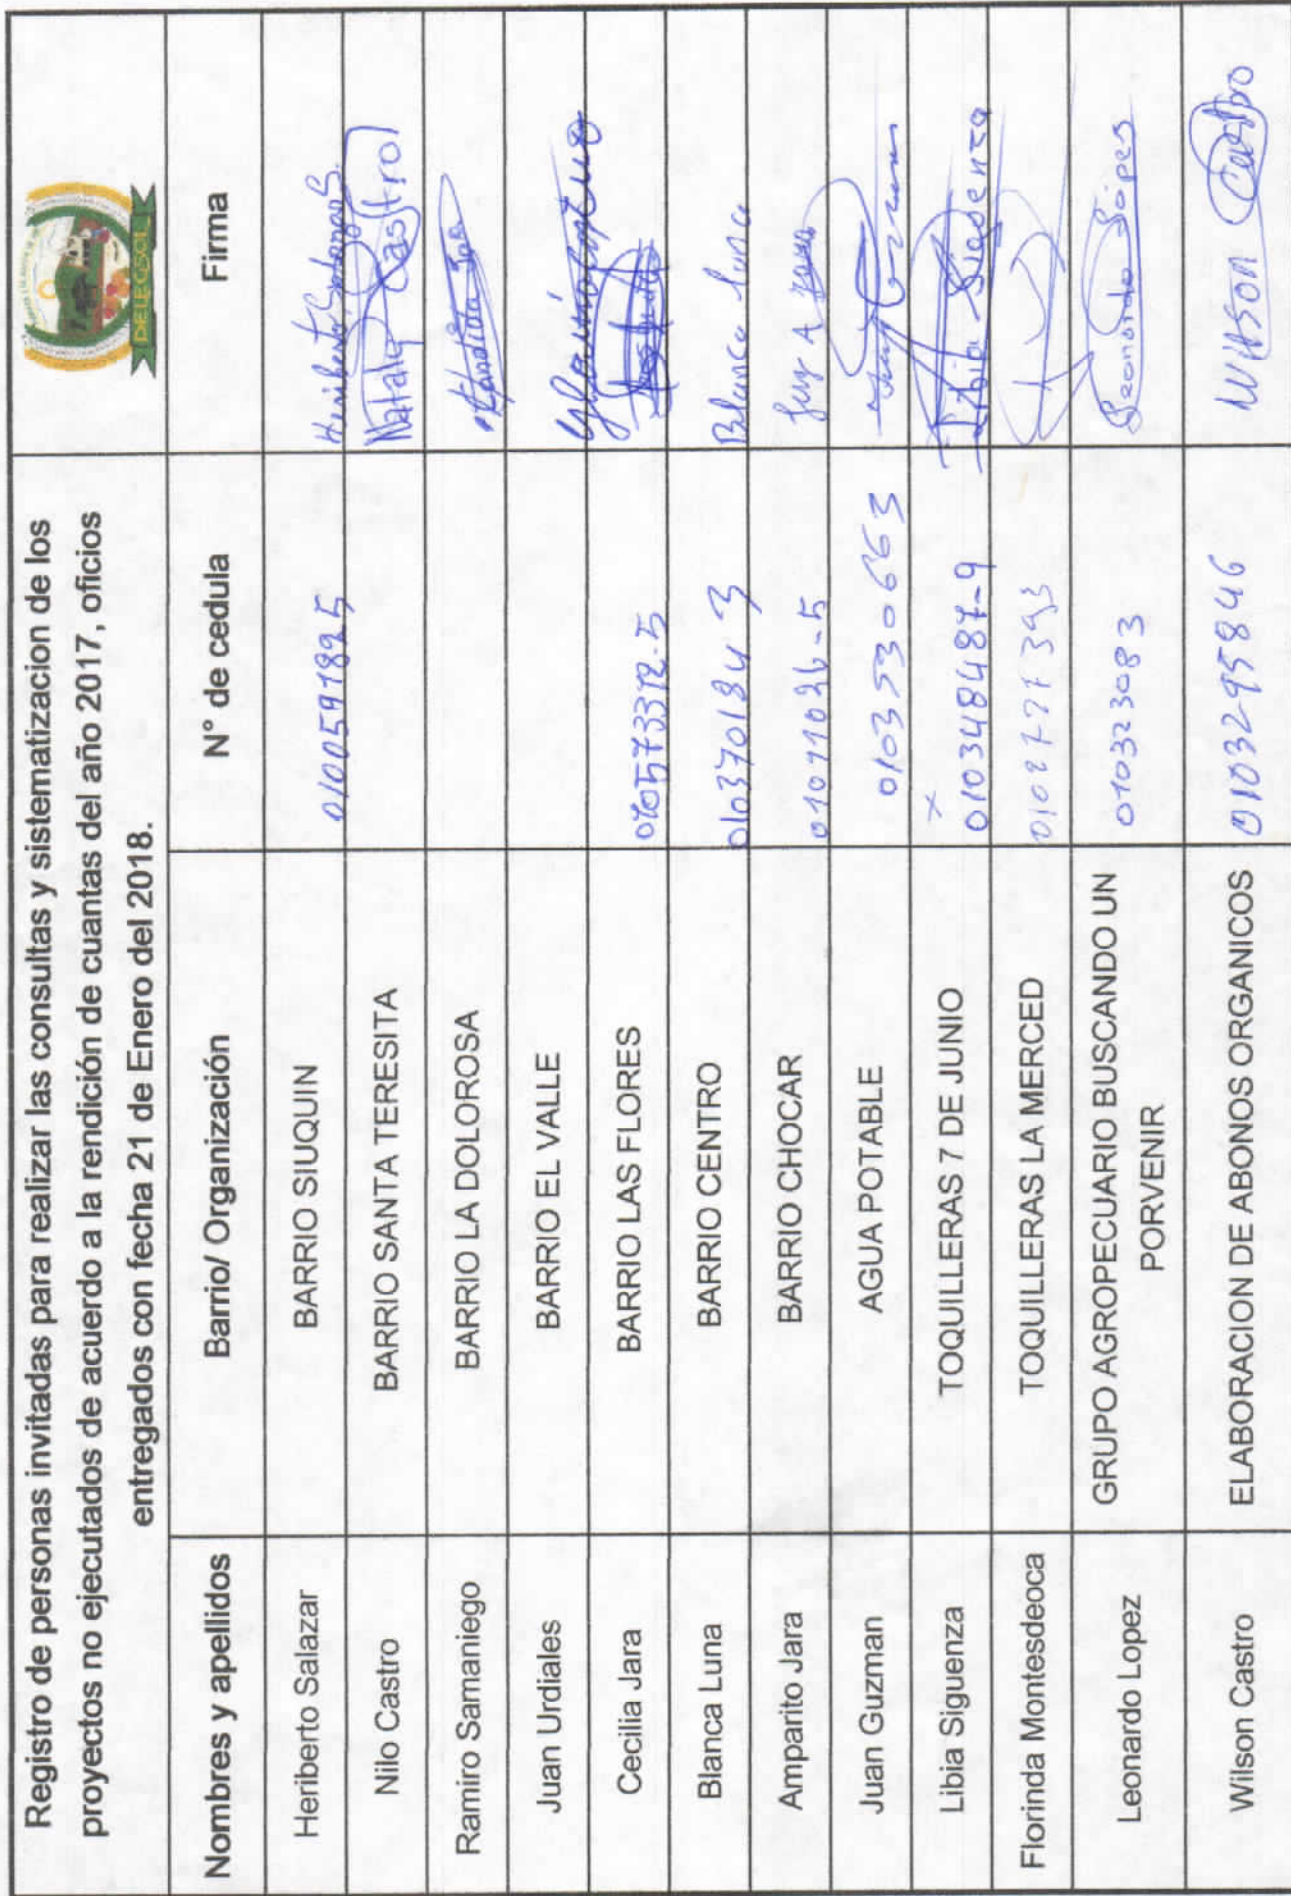 Registro de personas invitadas para realizar las consultas y sistematizacion de los
proyectos no ejecutados de acuerdo a la rendición de cuantas del año 2017, oficios
entregados con fecha 21 de Enero del 2018.
DELEGSOL
Nombres y apellidos Barrio/ Organización N° de cedula Firma
Heriberto Salazar BARRIO SIUQUIN 0100591895 Heriberto
Nilo Castro BARRIO SANTA TERESITA Natalia Castro
Ramiro Samaniego BARRIO LA DOLOROSA
Juan Urdiales BARRIO EL VALLE
Cecilia Jara BARRIO LAS FLORES
Blanca Luna BARRIO CENTRO 010370184 3 Blanca Luna
Amparito Jara BARRIO CHOCAR
Juan Guzman AGUA POTABLE 010353066 3
x
Libia Siguenza TOQUILLERAS 7 DE JUNIO 010348487-9 Libia Siguenza
Florinda Montesdeoca TOQUILLERAS LA MERCED
Leonardo Lopez GRUPO AGROPECUARIO BUSCANDO UN 010323083 Leonardo López
PORVENIR
Wilson Castro ELABORACION DE ABONOS ORGANICOS 0103295846 Wilson Castro